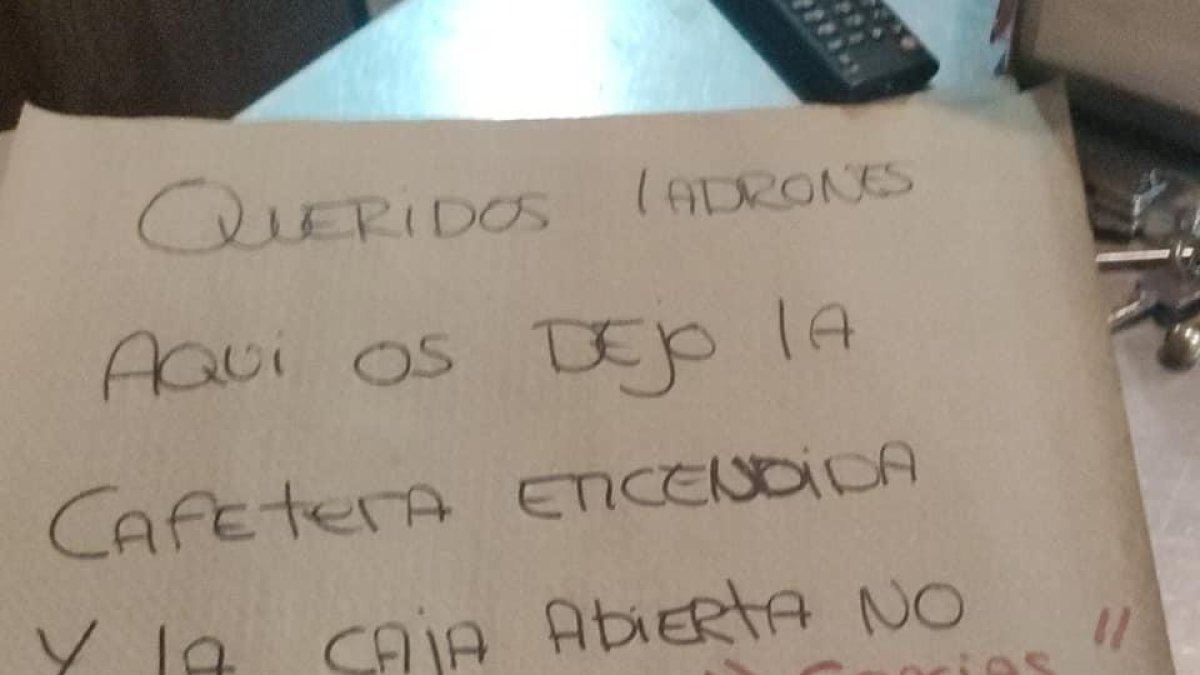 QUERIDOS LADRONES
AQUI OS DEJO LA
CAFETERA ENCENDIDA
Y LA CAJA ABIERTA NO
" Gracias "